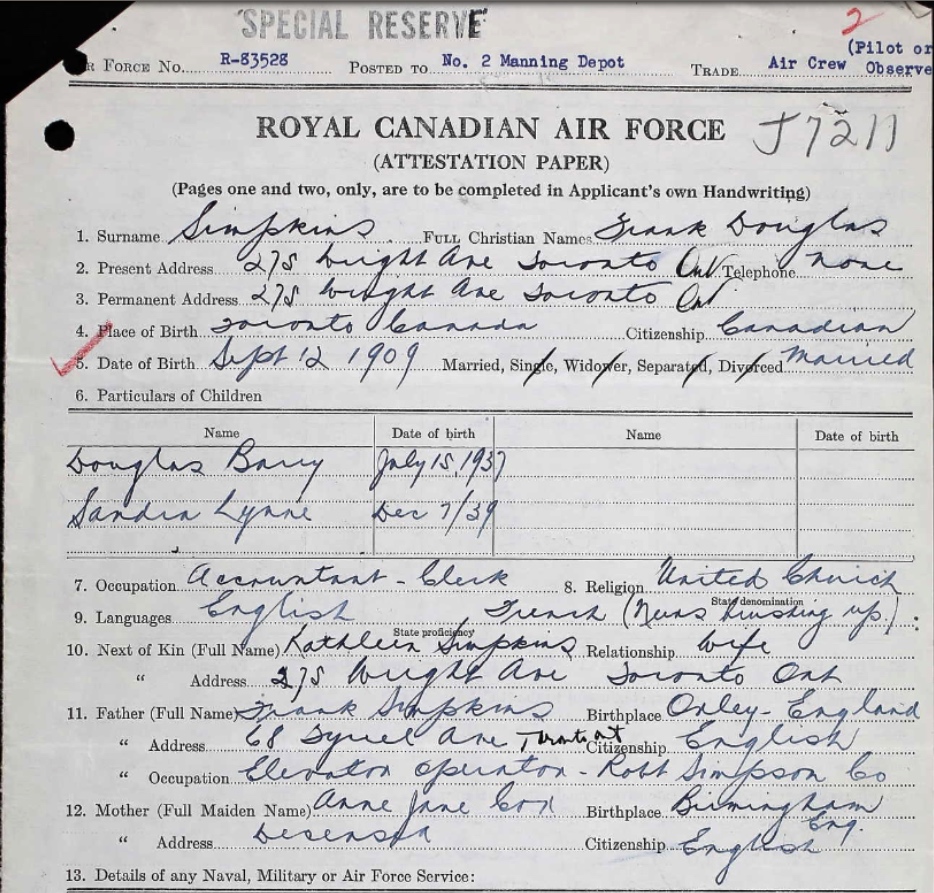 "SPECIAL RESERVE"
2
R FORCE NO. R-83528 POSTED TO No. 2 Manning Depot TRADE Air Crew (Pilot or
Observe
ROYAL CANADIAN AIR FORCE J7211
(ATTESTATION PAPER)
(Pages one and two, only, are to be completed in Applicant's own Handwriting)
1. Surname Simpkins FULL Christian Names Frank Douglas
2. Present Address 275 Wright Ave Toronto Ont Telephone none
3. Permanent Address 275 Wright Ave Toronto Ont
4. Place of Birth Toronto Canada Citizenship Canadian
5. Date of Birth Sept 12 1909 Married, Single, Widower, Separated, Divorced Married
6. Particulars of Children
Name Date of birth Name Date of birth
Douglas Barry July 15, 1937
Sandra Lynne Dec 7/39
7. Occupation Accountant - Clerk 8. Religion United Church
State denomination
9. Languages English French (Needs brushing up.)
State proficiency
10. Next of Kin (Full Name) Kathleen Simpkins Relationship Wife
" Address 275 Wright Ave Toronto Ont
11. Father (Full Name) Frank Simpkins Birthplace Oxley - England
" Address 68 Ave Toronto Ont Citizenship English
" Occupation Elevator Operator - Robt Simpson Co
12. Mother (Full Maiden Name) Anne Jane Cox Birthplace Birmingham Eng.
" Address Deceased Citizenship English
13. Details of any Naval, Military or Air Force Service: